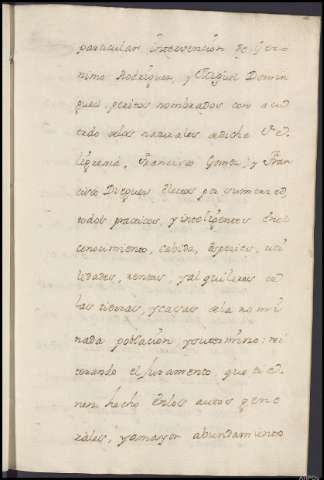 particular intervención de Gero-
nimo Rodriguez, y Miguel Domin
guez, peritos nombrados con acu
erdo delos naturales adicho
ligresia, Francisco Gomez, y Fran
cisco Dieguez electos por sumerced,
todos practicos, y inteligentes enel
conocimiento, cabida, especies, uti
lidades, rentas, y alquileres de
las tierras, y casas dela nomi
nada poblacion y sutermino: rei
terando el Juramento, que tie
nen hecho enlos autos gene
rales, y amayor abundamiento